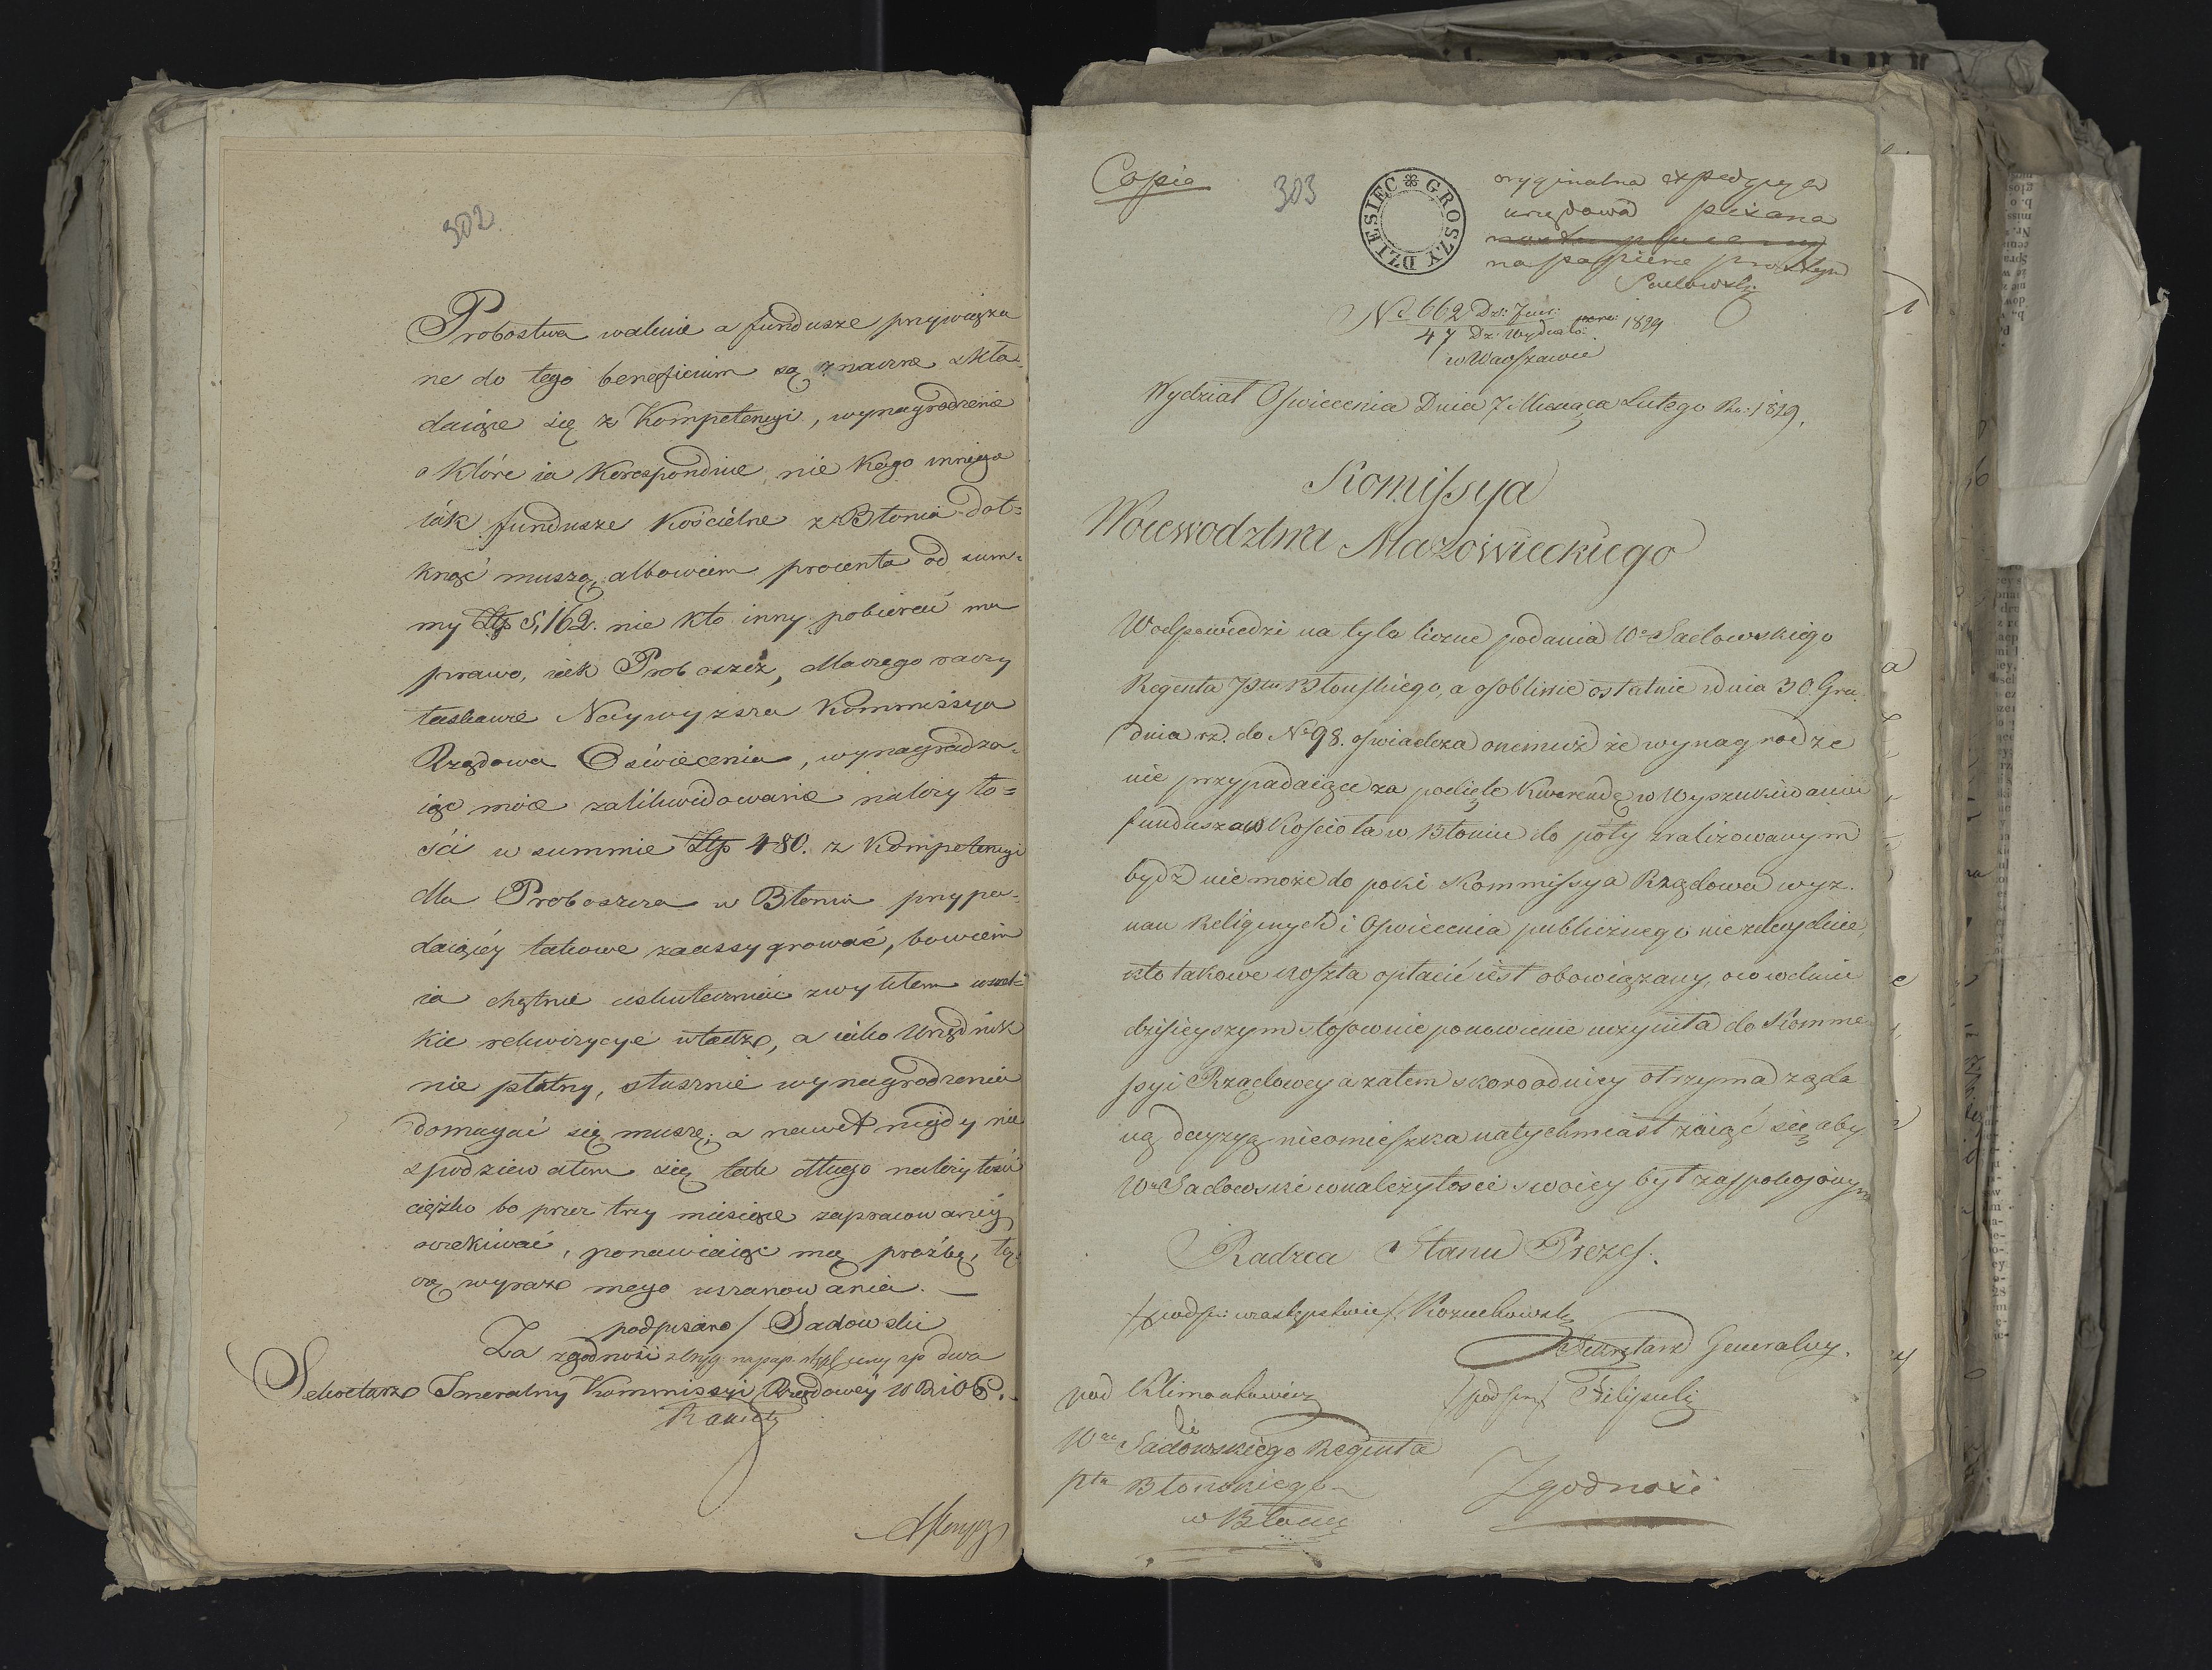 302.
Probostwa walnie a fundusze przywiąza
ne do tego beneficium są znaczne skła=
daiące się z Kompetencyi, wynagrodzenie
o które ia Koresponduie, nie Kogo innego
iak fundusze Kościelne z Błonia dot=
knąć muszą; albowiem procenta od sum=
my Złp 5,162. nie kto inny pobierać ma
prawo, iak Proboszcz, dla czego raczy
łaskawie Naywyższa Kommissya
Rządowa Oświecenia, wynagradza=
iąc moie zalikwidowanie należyto=
ści w summie Złp 480. z Kompetencyi
dla Proboszcza w Błoniu przypa=
daiącéy takowe zaassygnować, bowiem
ia chętnie uskuteczniać zwykłem wszel=
kie rekwizycye władz, a iako Urzędnik
nie płatny, słusznie wynagrodzenia
domagać się muszę; a nawet nigdy nie
spodziewałem się tak długo należytości
ciężko bo przez trzy miesiące zapracowanéy
oczekiwać, ponawiaiąc mą prośbę, łą=
czę wyraz mego uszanowania. —
podpisano / Sadowski
Za zgodność z oryg: na pap. stępl ceny zp dwa
Sekretarz Jeneralny Kommissyi Rządowéy W R i O P.
Copia
303
DZIESIEC GROSZY
oryginalna expedycya
urzędowa pisana
na papierze prostym
Sadowski
No 662 Dz:
47 Dz: Wydziału 1829
w Warszawie
Wydział Oświecenia Dnia 7 Miesiąca Lutego Ro: 1829.
Komissya
Woiewodztwa Mazowieckiego
W odpowiedzi na tyle liczne podania Wo Sadowskiego
Regenta Ptu Błońskiego, a osobliwie ostatnie z dnia 30 Gru=
dnia rz. do No 98. oświadcza onemuż że wynagrodze
nie przypadaiące za podięte Kwerendę w Wyszukiwaniu
funduszów Kościoła w Błoniu do póty zrealizowanym
bydź nie może do poki Kommissya Rządowa wyz=
nań Religinych i Oświecenia publicznego nie zdecyduie,
kto takowe koszta opłacić iest obowiązany, oco w dniu
dzisieyszym stosownie ponowienie uczyniła do Komme=
ssyi Rządowey a zatem skoro od niey otrzyma żąda
ną decyzyą nieomieszka natychmiast zaiąć się aby
Wy Sadowski w należytości swoiey był zaspokojonym
Radzca Stanu Prezes.
/podpis: w zastępstwie/ Kożuchowski
Sekretarz Generalny.
/podpis/ Filipecki
pod Klimontowicz
do
Wo Sadowskiego Regenta
Ptu Błońskiego
w Błoniu
Zgodność